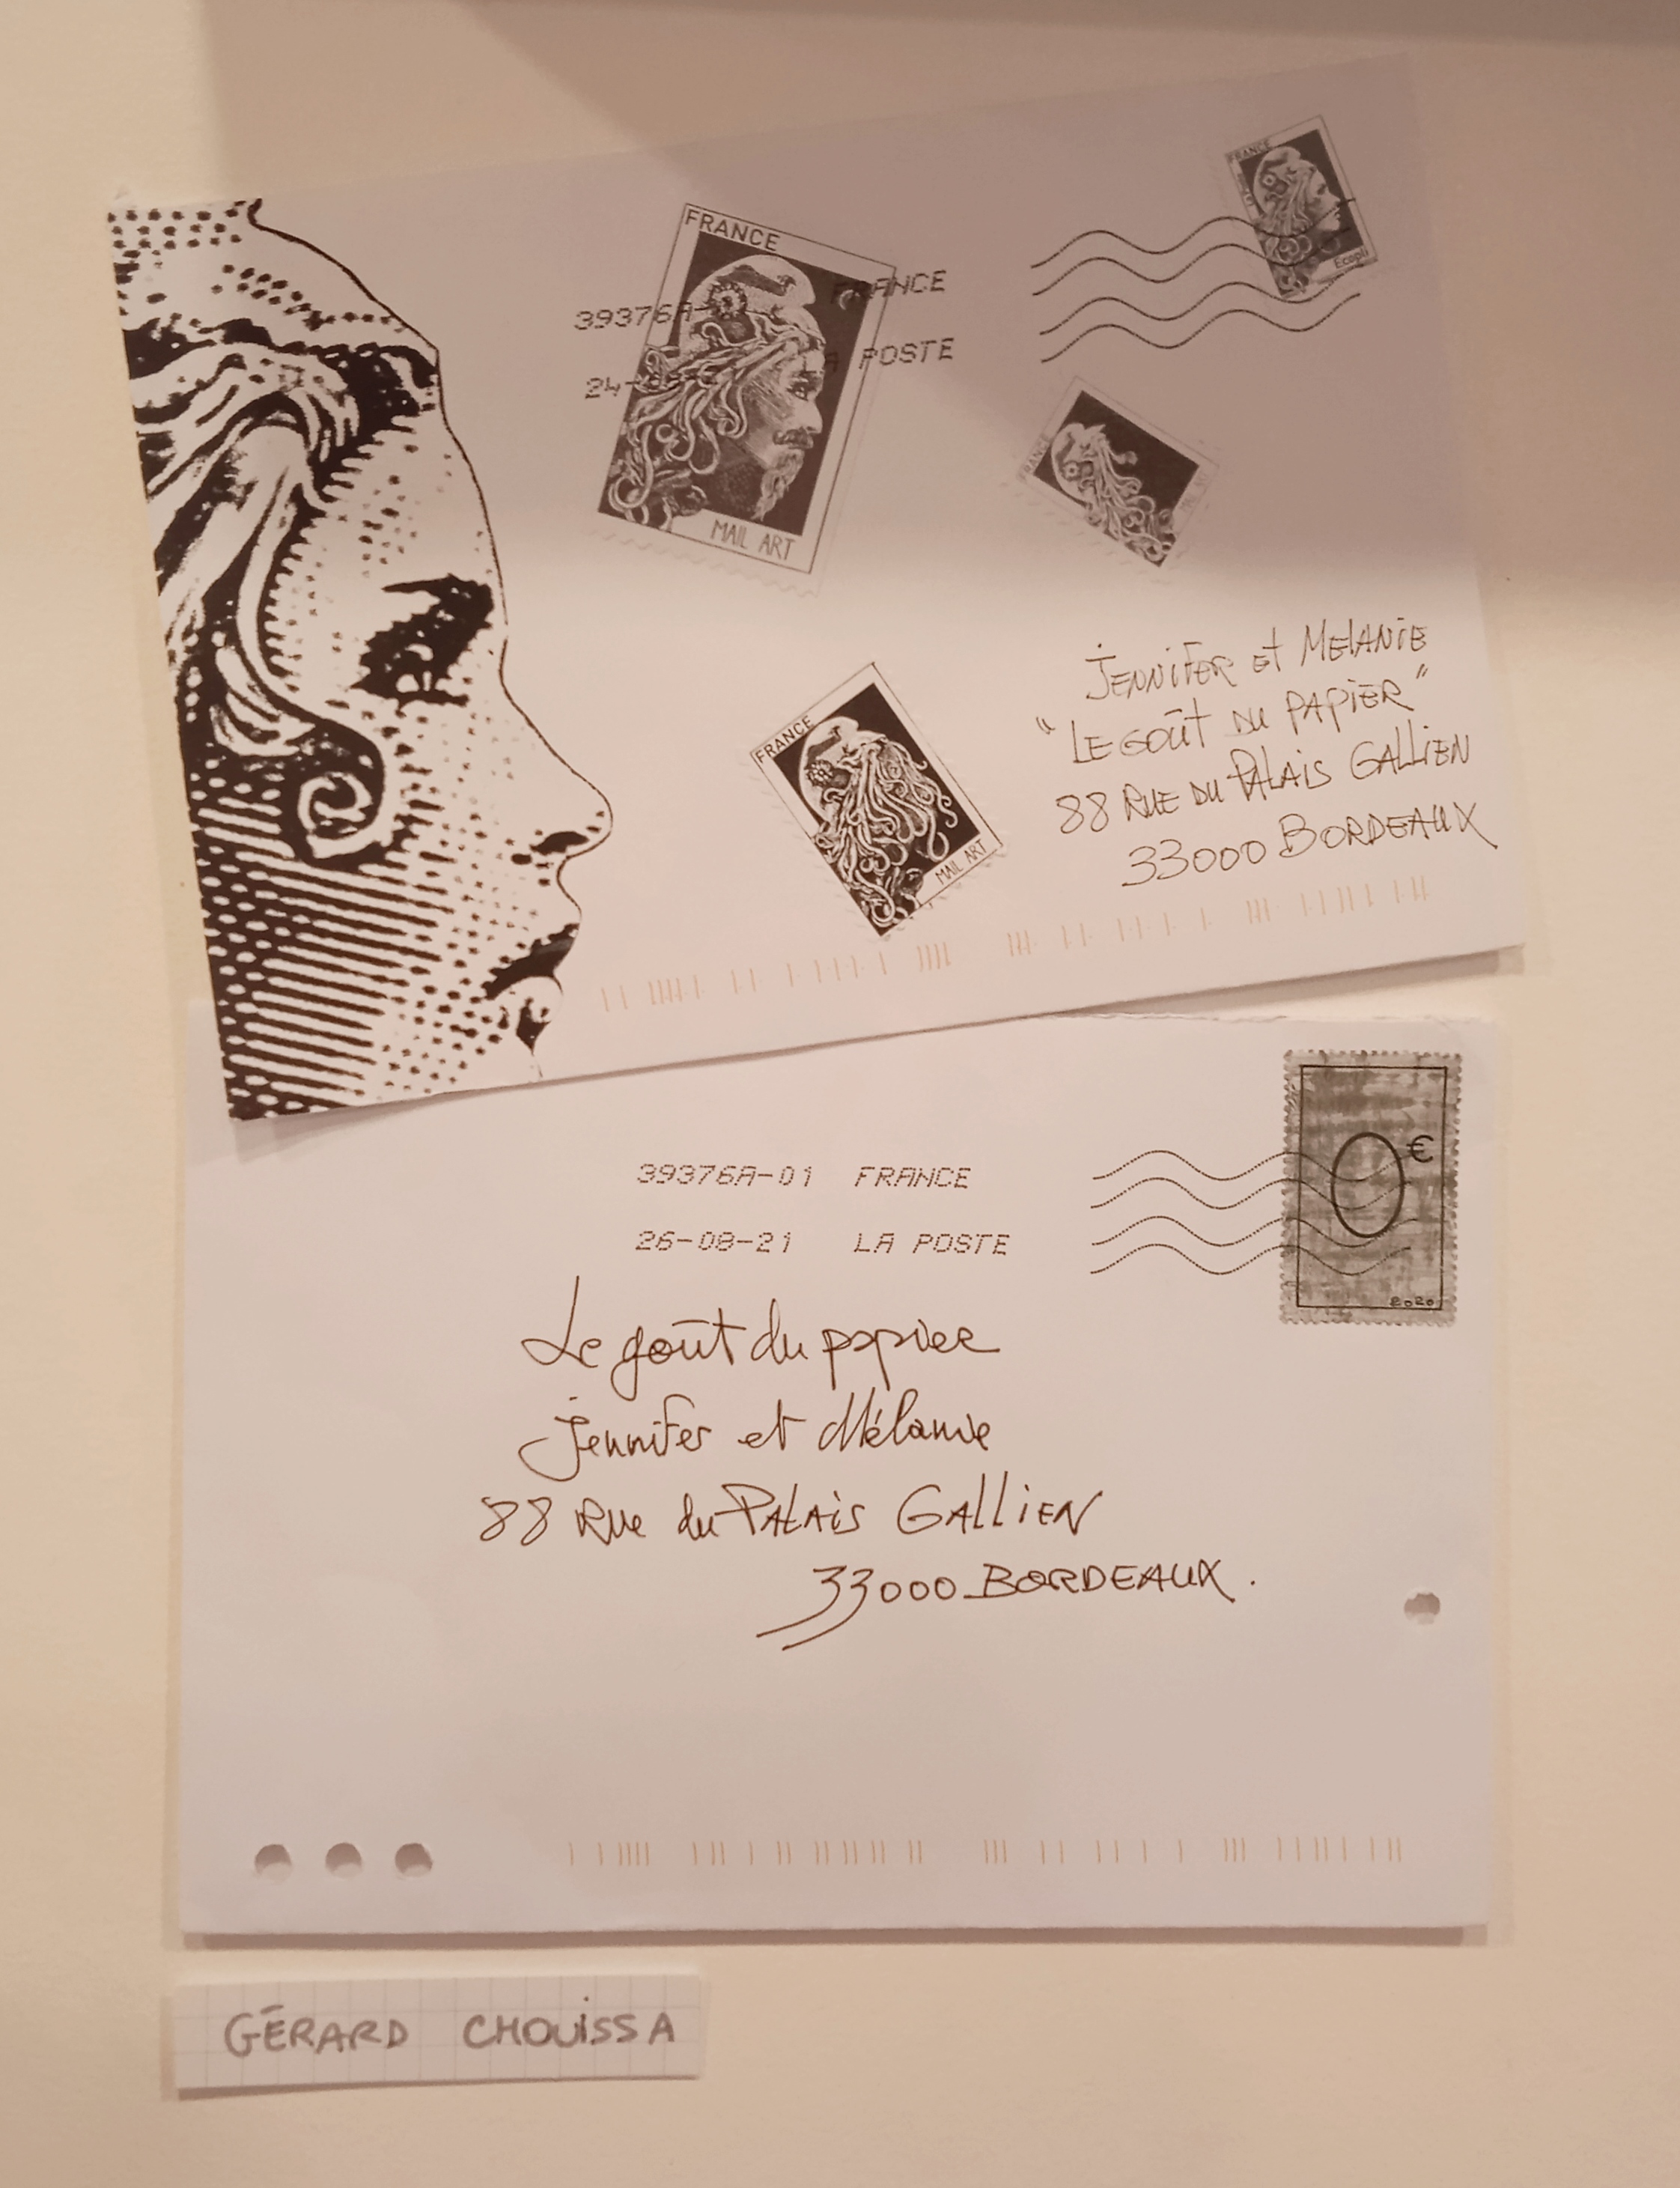 FRANCE
Ecopli
FRANCE
MAIL ART
39376A-
FRANCE
24-
LA POSTE
FRANCE
FRANCE
MAIL ART
JENNIFER et MELANIE
"LE GOÛT DU PAPIER"
88 RUE DU PALAIS GALLIEN
33000 BORDEAUX
39376A-01 FRANCE
26-08-21 LA POSTE
0 €
2020
Le goût du papier
Jennifer et Mélanie
88 Rue du PALAIS GALLIEN
33000 BORDEAUX.
GÉRARD CHOUISSA